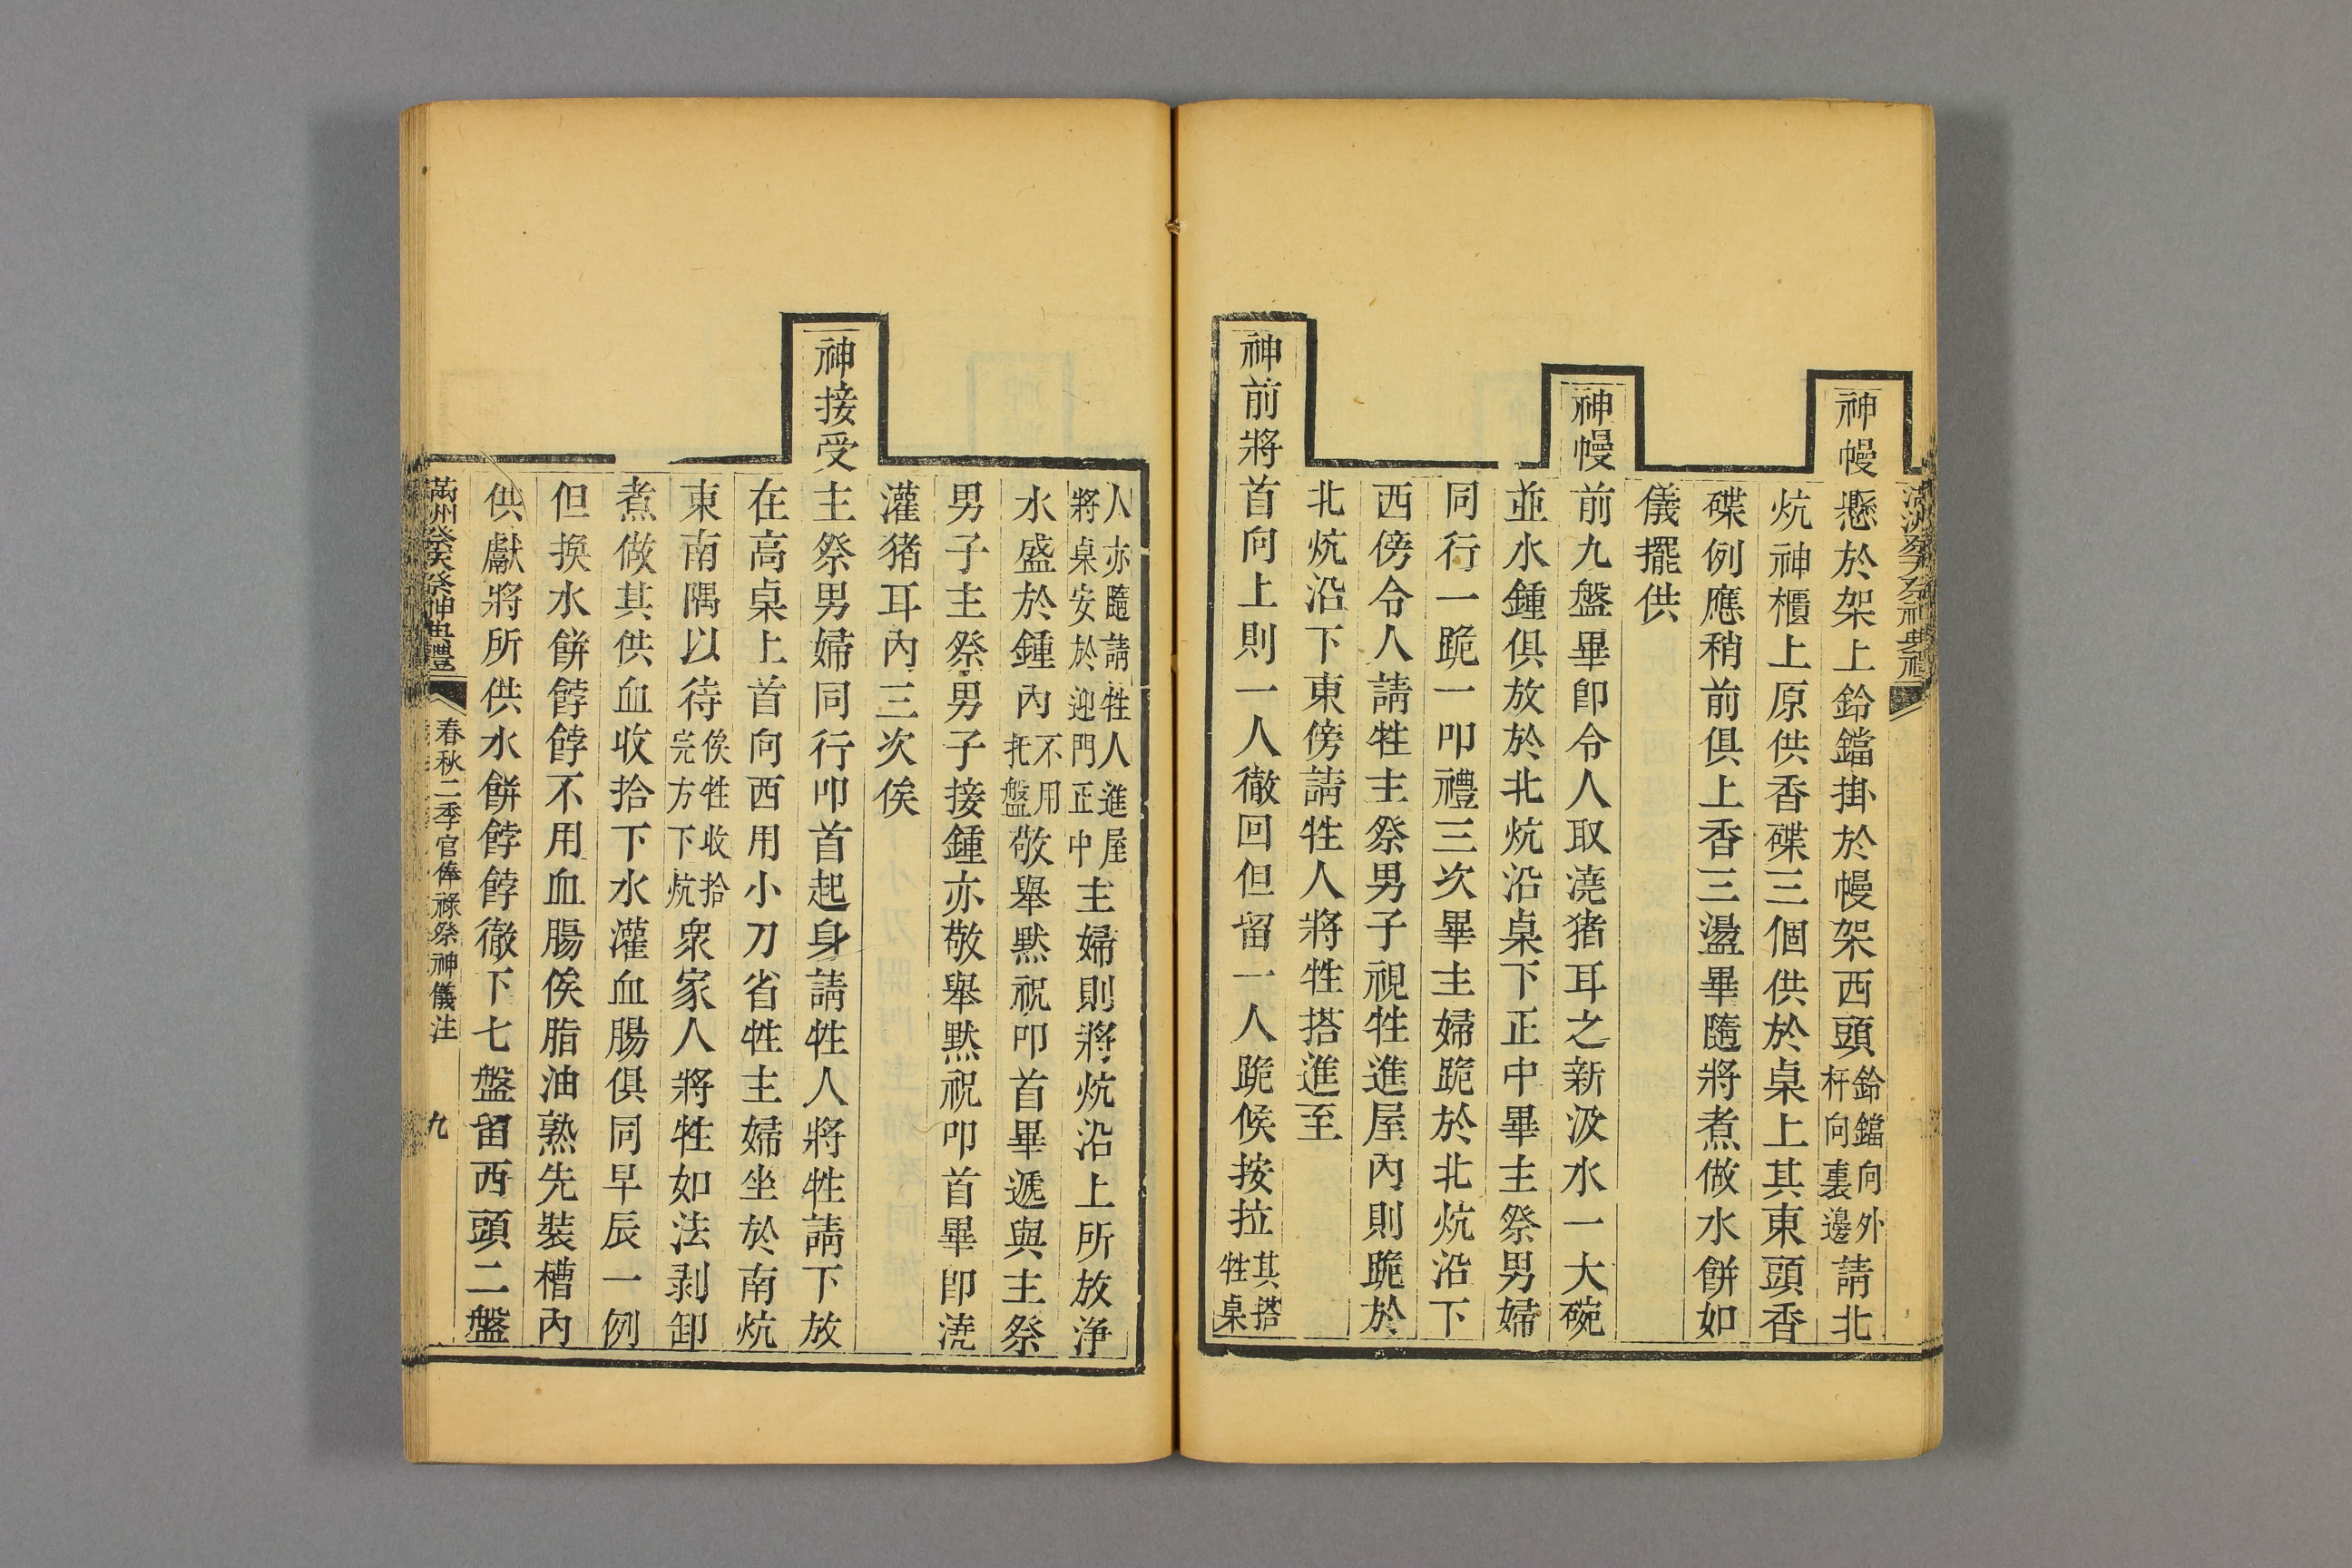 神幔懸於架上鈴鐺掛於幔架西頭鈴鐺向外杆向裏邊請北
炕神櫃上原供香碟三個供於桌上其東頭香
碟例應稍前俱上香三盪畢隨將煮做水餅如
儀擺供
神幔前九盤畢卽令人取澆猪耳之新汲水一大碗
並水鍾俱放於北炕沿桌下正中畢主祭男婦
同行一跪一叩禮三次畢主婦跪於北炕沿下
西傍令人請牲主祭男子視牲進屋內則跪於
北炕沿下東傍請牲人將牲搭進至
神前將首向上則一人徹回但留一人跪候按拉其搭牲桌
人亦隨請牲人進屋將桌安於迎門正中主婦則將炕沿上所放浄
水盛於鍾內不用托盤敬舉默祝叩首畢遞與主祭
男子主祭男子接鍾亦敬舉默祝叩首畢卽澆
灌猪耳內三次俟
神接受主祭男婦同行叩首起身請牲人將牲請下放
在高桌上首向西用小刀省牲主婦坐於南炕
東南隅以待俟牲收拾完方下炕衆家人將牲如法剥卸
煮做其供血收拾下水灌血腸俱同早辰一例
但換水餅餑餑不用血腸俟脂油熟先裝槽內
供獻將所供水餅餑餑徹下七盤留西頭二盤
滿洲祭天祭神典禮
春秋二季官俸祿祭神儀注
九